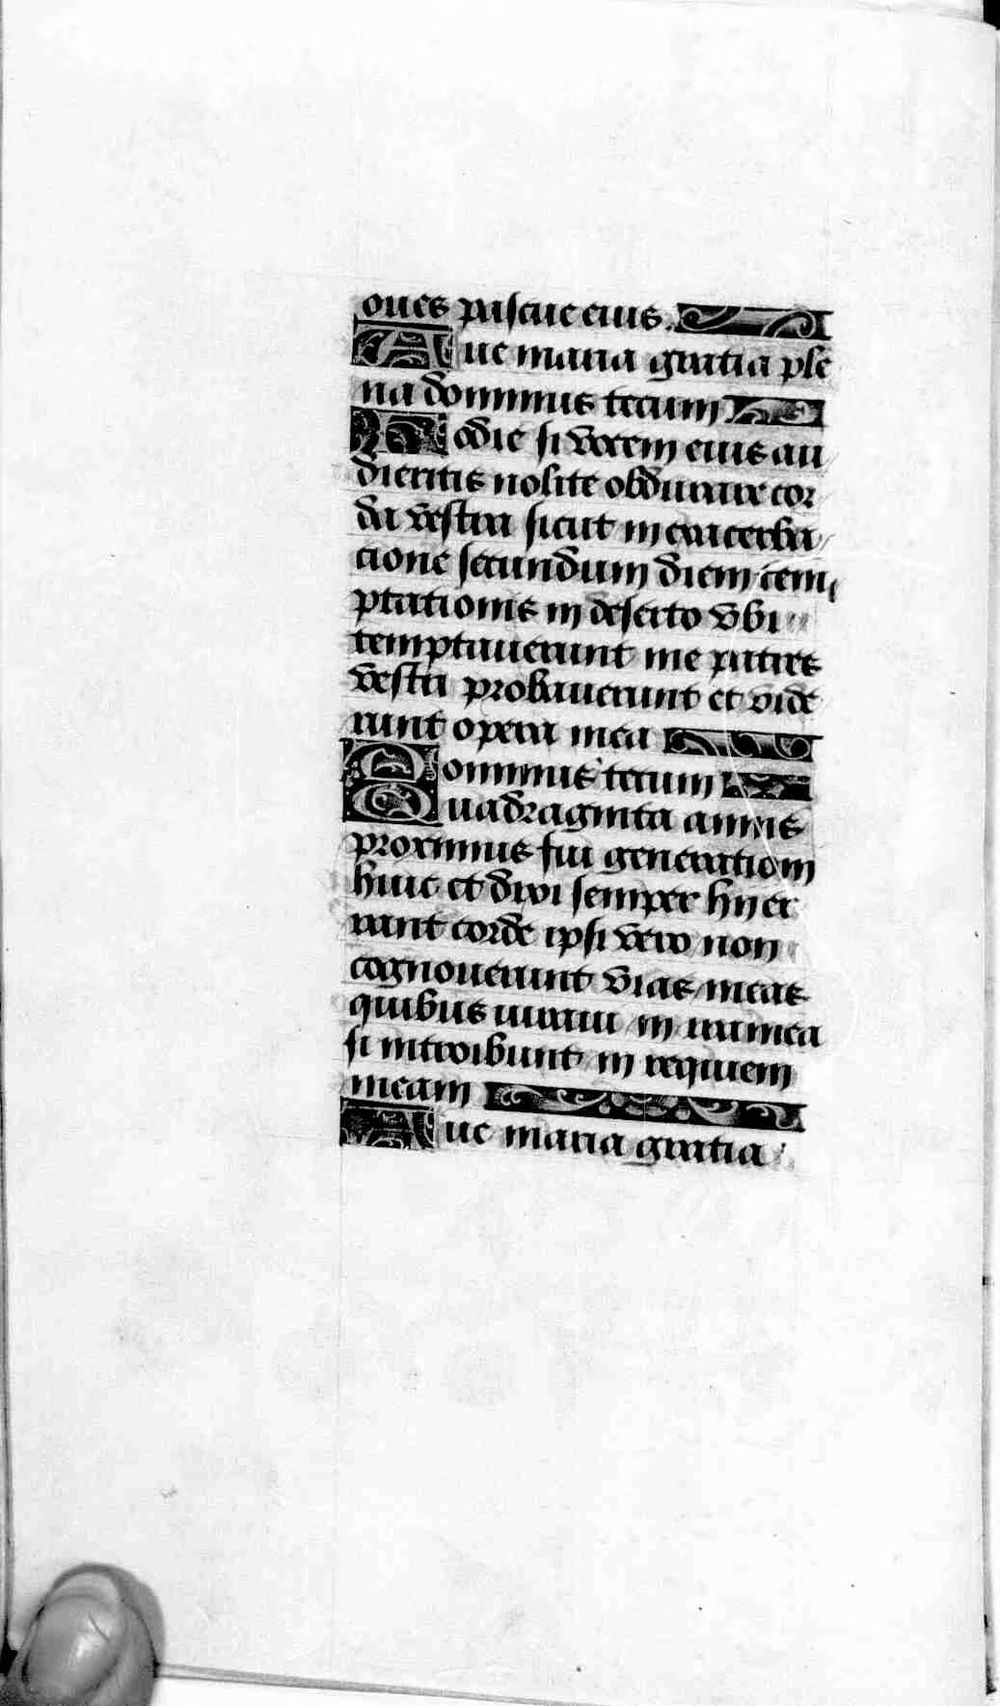 oues pascue eius.
Aue maria gratia ple
na dominus tecum
Hodie si vocem eius au
dieritis nolite obdurare cor
da vestra sicut in exacerba
cione secundum diem tem
ptationis in deserto vbi
temptauerunt me patres
vestri probauerunt et vide
runt opera mea
Dominus tecum
Quadraginta annis
proximus fui generationi
huic et dixi semper hii er
rant corde ipsi vero non
cognouerunt vias meas
quibus iuraui in ira mea
si introibunt in requiem
meam
Aue maria gratia